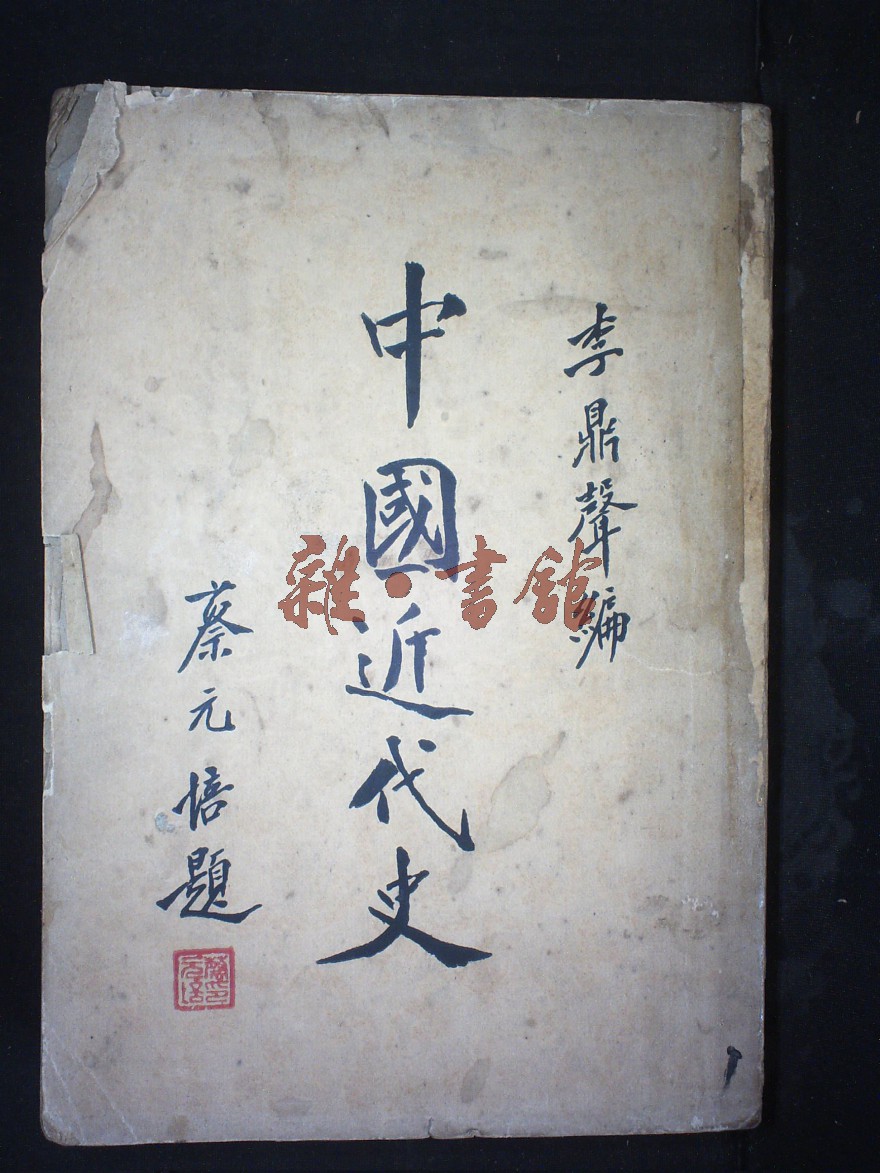 李鼎聲編
中國近代史
蔡元培題
蔡元培印
雜·書館